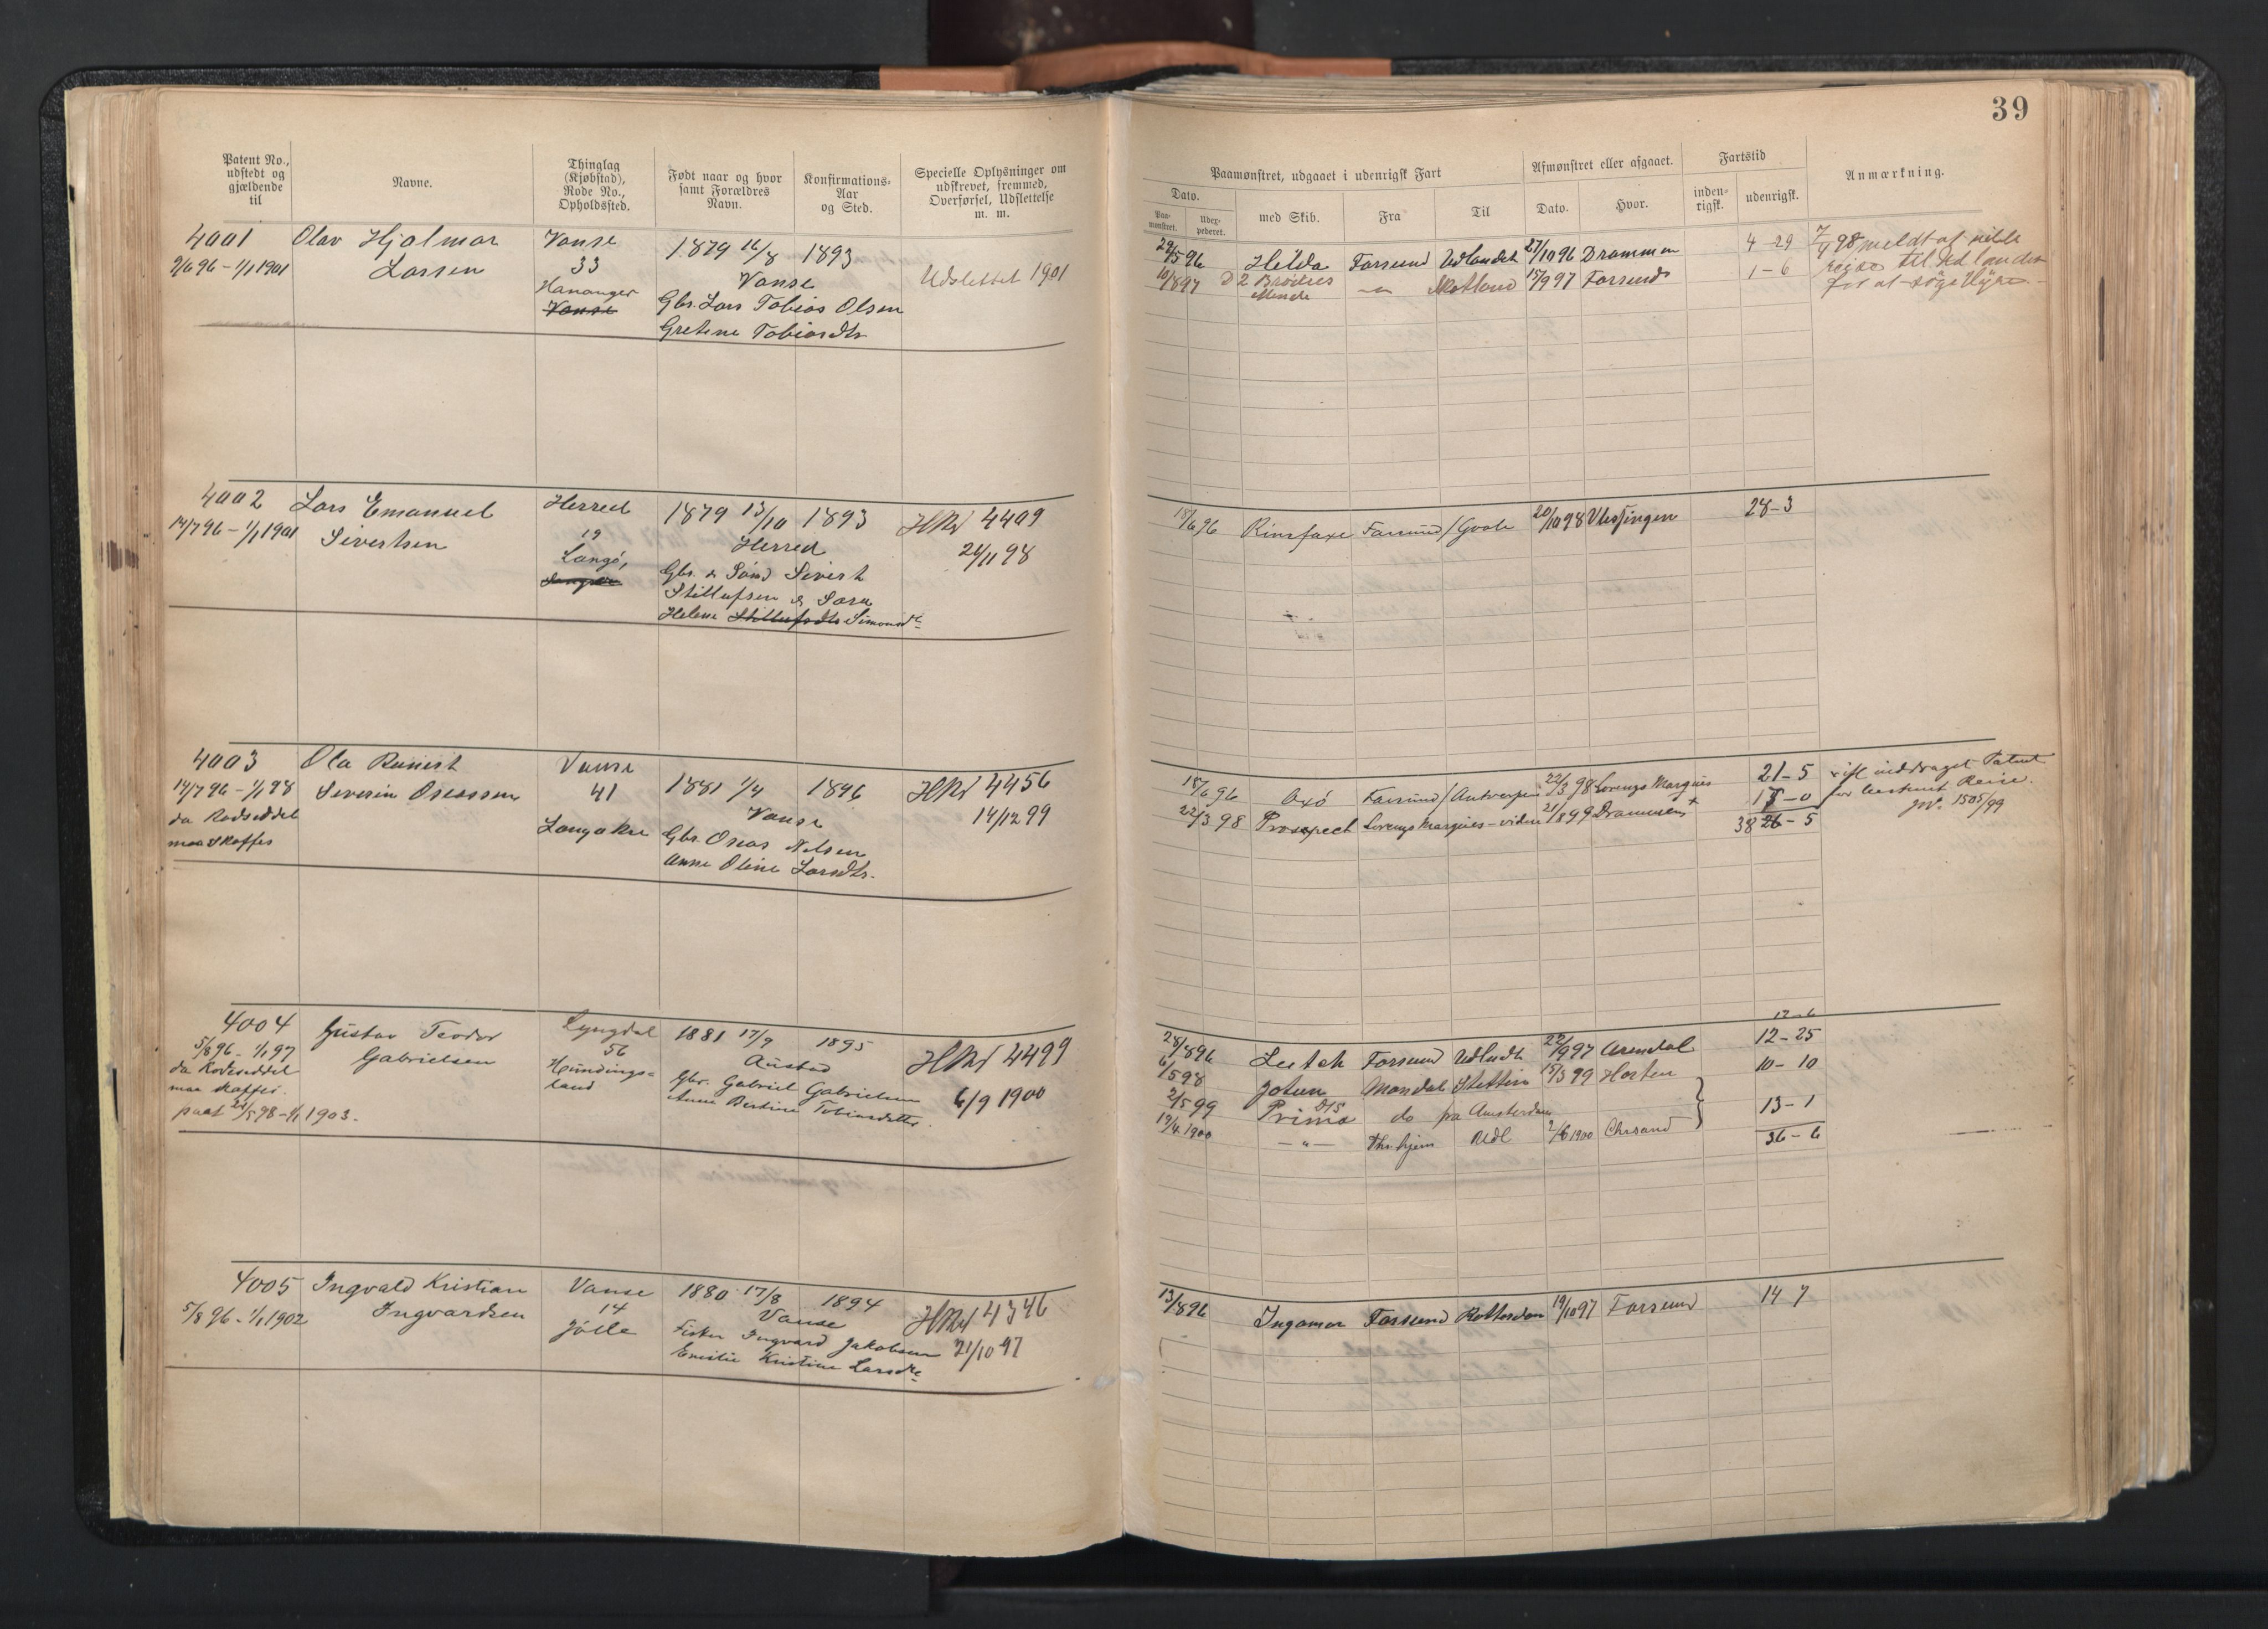 39
Patent No., udstedt og gjældende til
Navne.
Thinglag (Kjøbstad), Rode No., Opholdssted.
Født naar og hvor samt Forældres Navn.
Konfirmations-Aar og Sted.
Specielle Oplysninger om udskrevet, fremmed, Overførsel, Udslettelse m. m.
Paamønstret, udgaaet i udenrigsk Fart
Dato.
Paa-mønstret.
Uder-pederet.
med Skib.
Fra
Til
Afmønstret eller afgaaet.
Dato.
Hvor.
Fartstid
inden-rigsk.
udenrigsk.
Anmærkning.
4001 Olav Hjalmar Vanse 1879 16/8 1893
9/6 96 - 1/1 1901 Larsen 33 Vanse Udslettet 1901
Hananger Gbr. Lars Tobias Olsen
Vanse Gretine Tobiasdtr
29/5 96 Hilda Farsund Udlandet 27/10 96 Drammen 4-29
10/8 97 D 2 Brødres Minde — " — Skotland 15/9 97 Farsund 1-6
98 meldt at ville
reise til Udlandet
for at søge Hyre
4002 Lars Emanuel Herred 1879 13/10 1893 HRv 4409
14/7 96 - 1/1 1901 Sivertsen 19 Herred 24/11 98
Langø, Gbr. & Sømd Sivert
Stillufsen & Sara
Helene Stillufsdtr Simonsdtr
18/6 96 Rimfaxe Farsund / Goole 20/10 98 Vlissingen 28-3
4003 Ola Reinert Vanse 1881 1/4 1896 HRv 4456
14/7 96 - 1/1 98 Severin Oseassen 41 Vanse 14/12 99
da Rodseddel Langaker Gbr. Oseas Nilsen
maa skaffes Anne Oline Larsdtr.
18/6 96 Oxö Farsund / Antwerpen 22/3 98 Lorenzo Marques 21-5
22/3 98 Prospect Lorenzo Marques - videre 21/8 99 Drammen + 17-0
38 26-5
+ ifl inddraget Patent
for bestemt Reise.
JN. 1505/99
4004 Gustav Teodor Lyngdal 1881 17/9 1895 HRv 4499
5/8 96 - 1/1 97 Gabrielsen 56 Austad 6/9 1900
da Rodeseddel Hundings- Gbr. Gabriel Gabrielsen
maa skaffes. land Anne Bertine Tobiasdatter.
paat 24/5 98 - 1/1 1903.
12-6
28/8 96 Luteh Farsund Udlndt 22/9 97 Arendal 12-25
6/5 98 Jotun Mandal Stettin 15/3 99 Horten 10-10
2/5 99 Prima D/S do fra Amsterdam 13-1
19/4 1900 — " — Thr.hjem Udl 2/6 1900 Chrsand 36-6
4005 Ingvald Kristian Vanse 1880 17/8 1894 HRv 4346
5/8 96 - 1/1 1902 Ingvardsen 14 Vanse 21/10 97
Jölle Fisker Ingvard Jakobsen
Emilie Kristine Larsdtr
13/8 96 Ingomar Farsund Rotterdam 19/10 97 Farsund 14 7